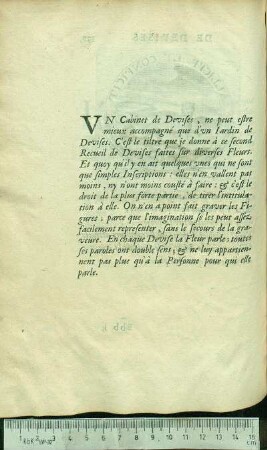 VN Cabinet de Devises, ne peut estre
mieux accompagné que d'vn Iardin de
Devises. C'est le tiltre que je donne à ce second
Recueil de Devises faites sur diverses Fleurs.
Et quoy qu'il y en ait quelques vnes qui ne sont
que simples Inscriptions: elles n'en vallent pas
moins, ny n'ont moins cousté à faire; & c'est le
droit de la plus forte partie, de tirer l'intitula-
tion à elle. On n'en a point fait graver les Fi-
gures: parce que l'imagination se les peut assez
facilement representer, sans le secours de la gra-
veure. En chaque Devise la Fleur parle: toutes
ses paroles ont double sens; & ne luy appartien-
nent pas plus qu'à la Personne pour qui elle
parle.
1 2 3 4 5 6 7 8 9 10 11 12 13 14 15
cm